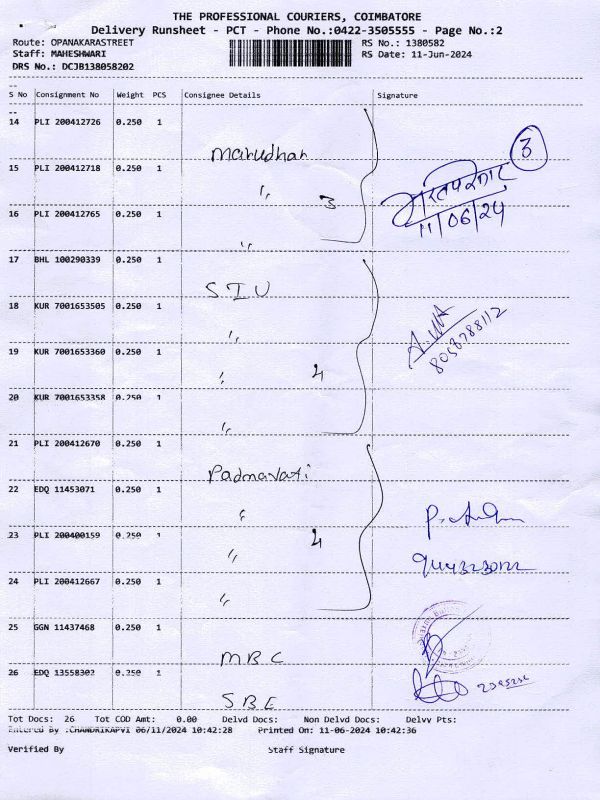 THE PROFESSIONAL COURIERS, COIMBATORE
Delivery Runsheet - PCT - Phone No.:0422-3505555 - Page No.:2
Route: OPANAKARASTREET RS No.: 1380582
Staff: MAHESHWARI RS Date: 11-Jun-2024
DRS No.: DCJB138058202
S No Consignment No Weight PCS Consignee Details Signature
14 PLI 200412726 0.250 1
Marudhar
15 PLI 200412718 0.250 1
,, 3
16 PLI 200412765 0.250 1
,,
3
11/06/24
17 BHL 100290339 0.250 1
STU
18 KUR 7001653505 0.250 1
,,
8058788112
19 KUR 7001653360 0.250 1
,, 4
20 KUR 7001653358 0.250 1
,,
21 PLI 200412670 0.250 1
Padmavati
22 EDQ 11453071 0.250 1
,,
23 PLI 200400159 0.250 1
,, 4
24 PLI 200412667 0.250 1
,,
25 GGN 11437468 0.250 1
MBC
26 EDQ 13558302 0.250 1
SBE
Tot Docs: 26 Tot COD Amt: 0.00 Delvd Docs: Non Delvd Docs: Delvv Pts:
Entered By :CHANDRIKAPVI 06/11/2024 10:42:28 Printed On: 11-06-2024 10:42:36
Verified By Staff Signature